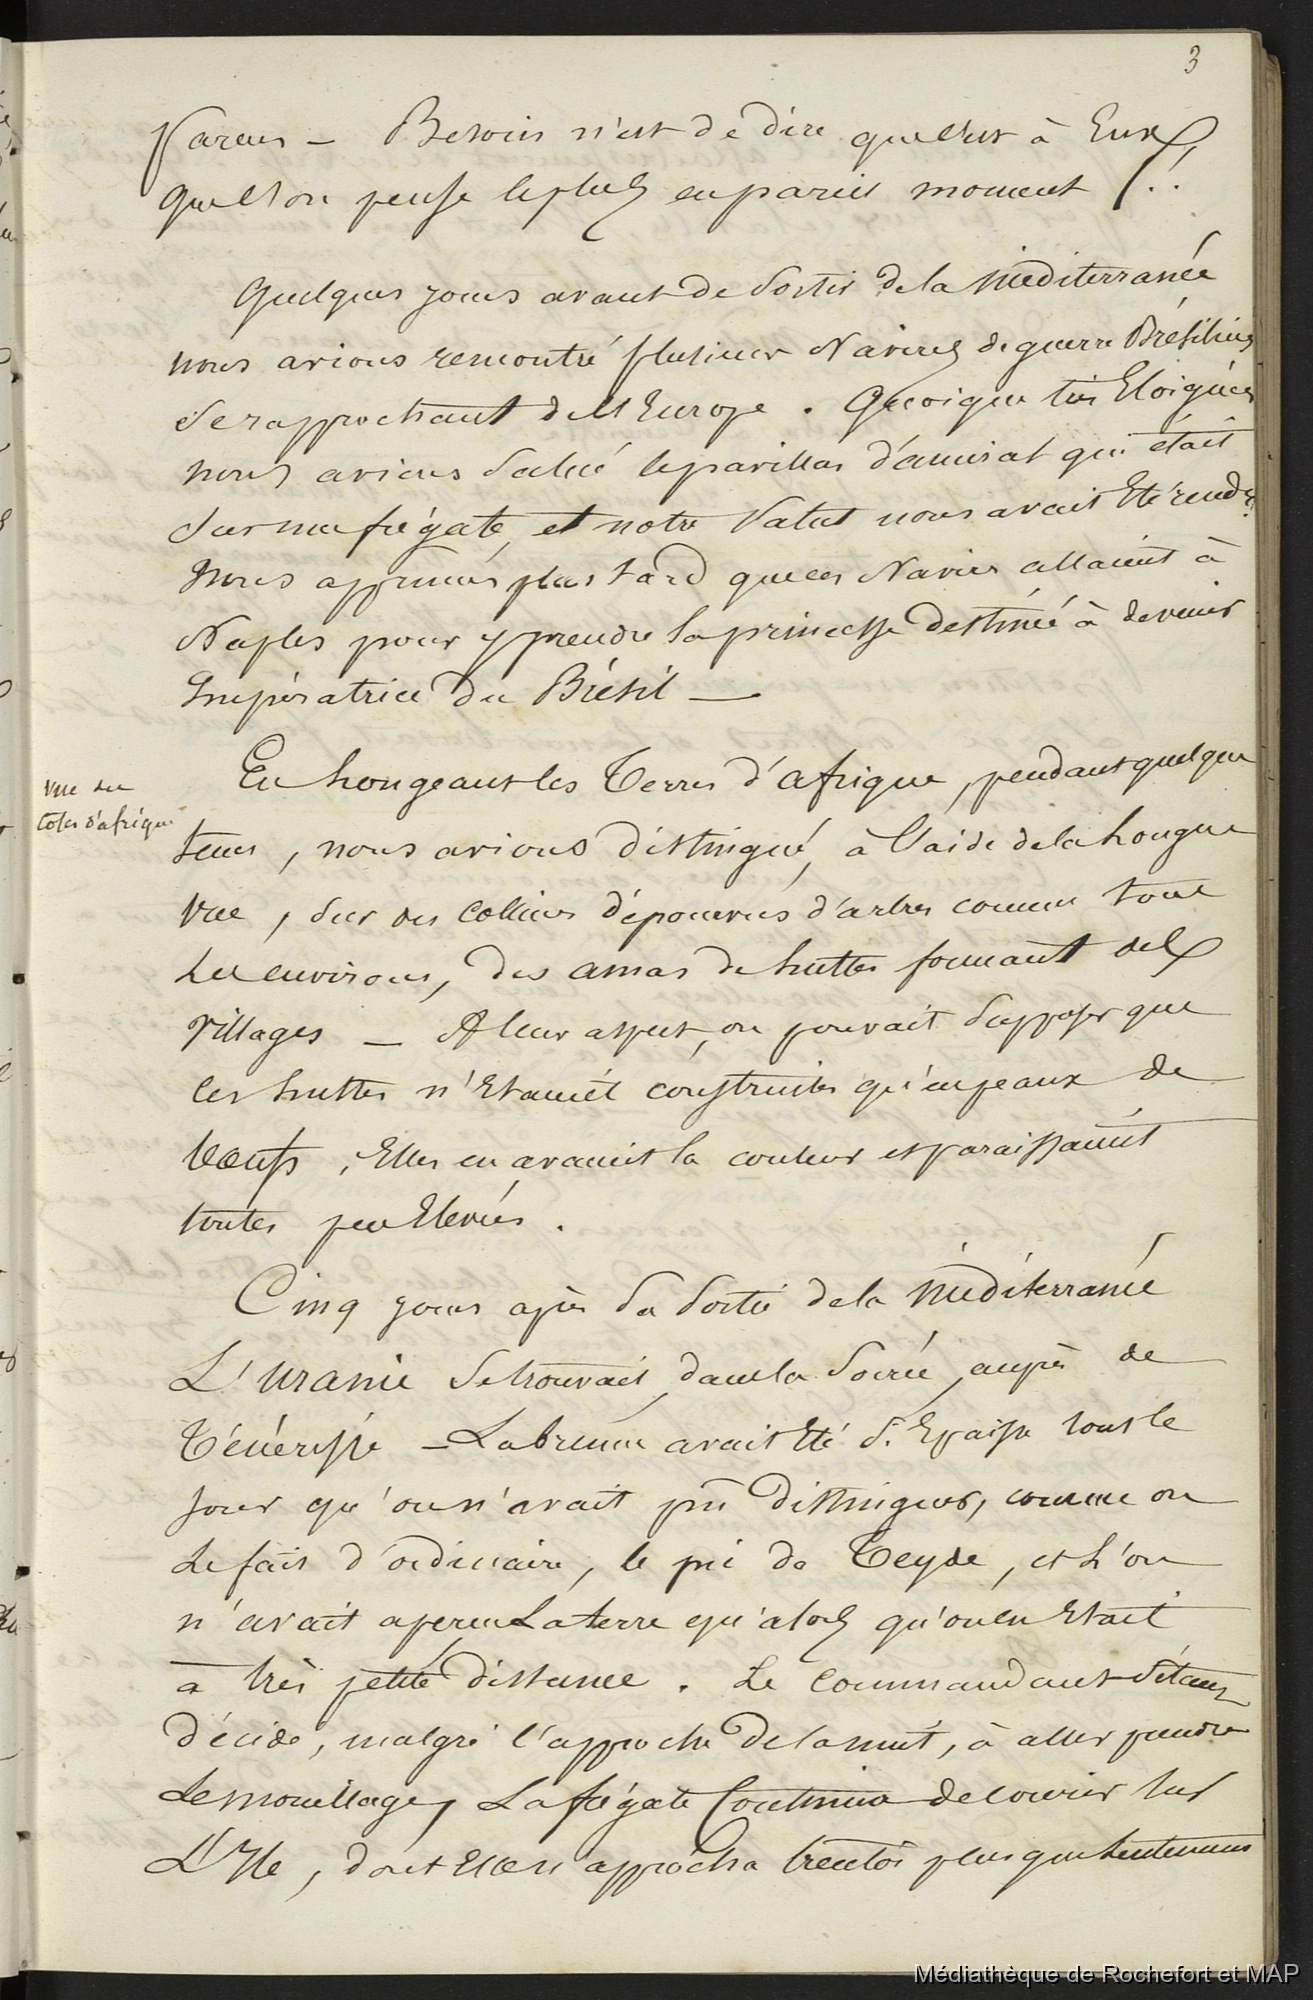 3
Parens – Besoin n'est de dire que c'est à Eux
que l'on pense le plus en pareil moment !..
Quelques jours avant de sortir de la méditerranée
nous avions rencontré plusieurs Navires de guerre Brésiliens
se rapprochant de l'Europe. Quoique très Eloignés
nous avions salué le pavillon d'amiral qui était
sur une frégate, et notre salut nous avait Eté rendu.
Nous apprimes plus tard que ces Navires allaient à
Naples pour y prendre la princesse destinée à devenir
Impératrice du Brésil —
vue des
cotes d'afrique
En Longeant les Terres d'afrique, pendant quelque
tems, nous avions distingué, à l'aide de la Longue
vue, sur des collines dépourvues d'arbres comme tous
les environs, des amas de huttes formant des
villages – A leur aspect, on pouvait supposer que
les huttes n'Etaient construites qu'en peaux de
bœufs, Elles en avaient la couleur et paraissaient
toutes peu Elevées.
Cinq jours après sa sortie de la Méditerranée
L'Uranie se trouvait, dans la soirée, auprès de
Ténériffe – La brume avait Eté si Epaisse tout le
jour qu'on n'avait pu distinguer, comme on
le fait d'ordinaire, le pic de Teyde, et L'on
n'avait aperçu La terre qu'alors qu'on en Etait
à très petite distance. Le Commandant s'étant
décidé, malgré l'approche de la nuit, à aller prendre
Le mouillage, La frégate Continua de courir sur
L'Ile, dont Elle s'approcha bientôt plus que lentement
Médiathèque de Rochefort et MAP